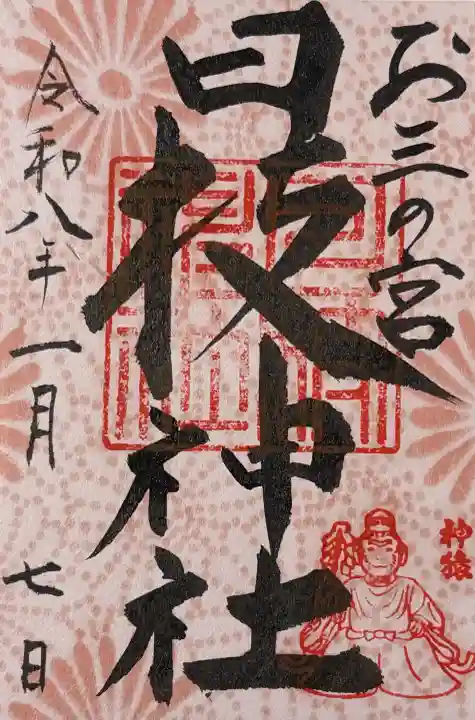 お三の宮
日枝神社
神猿
令和八年一月七日